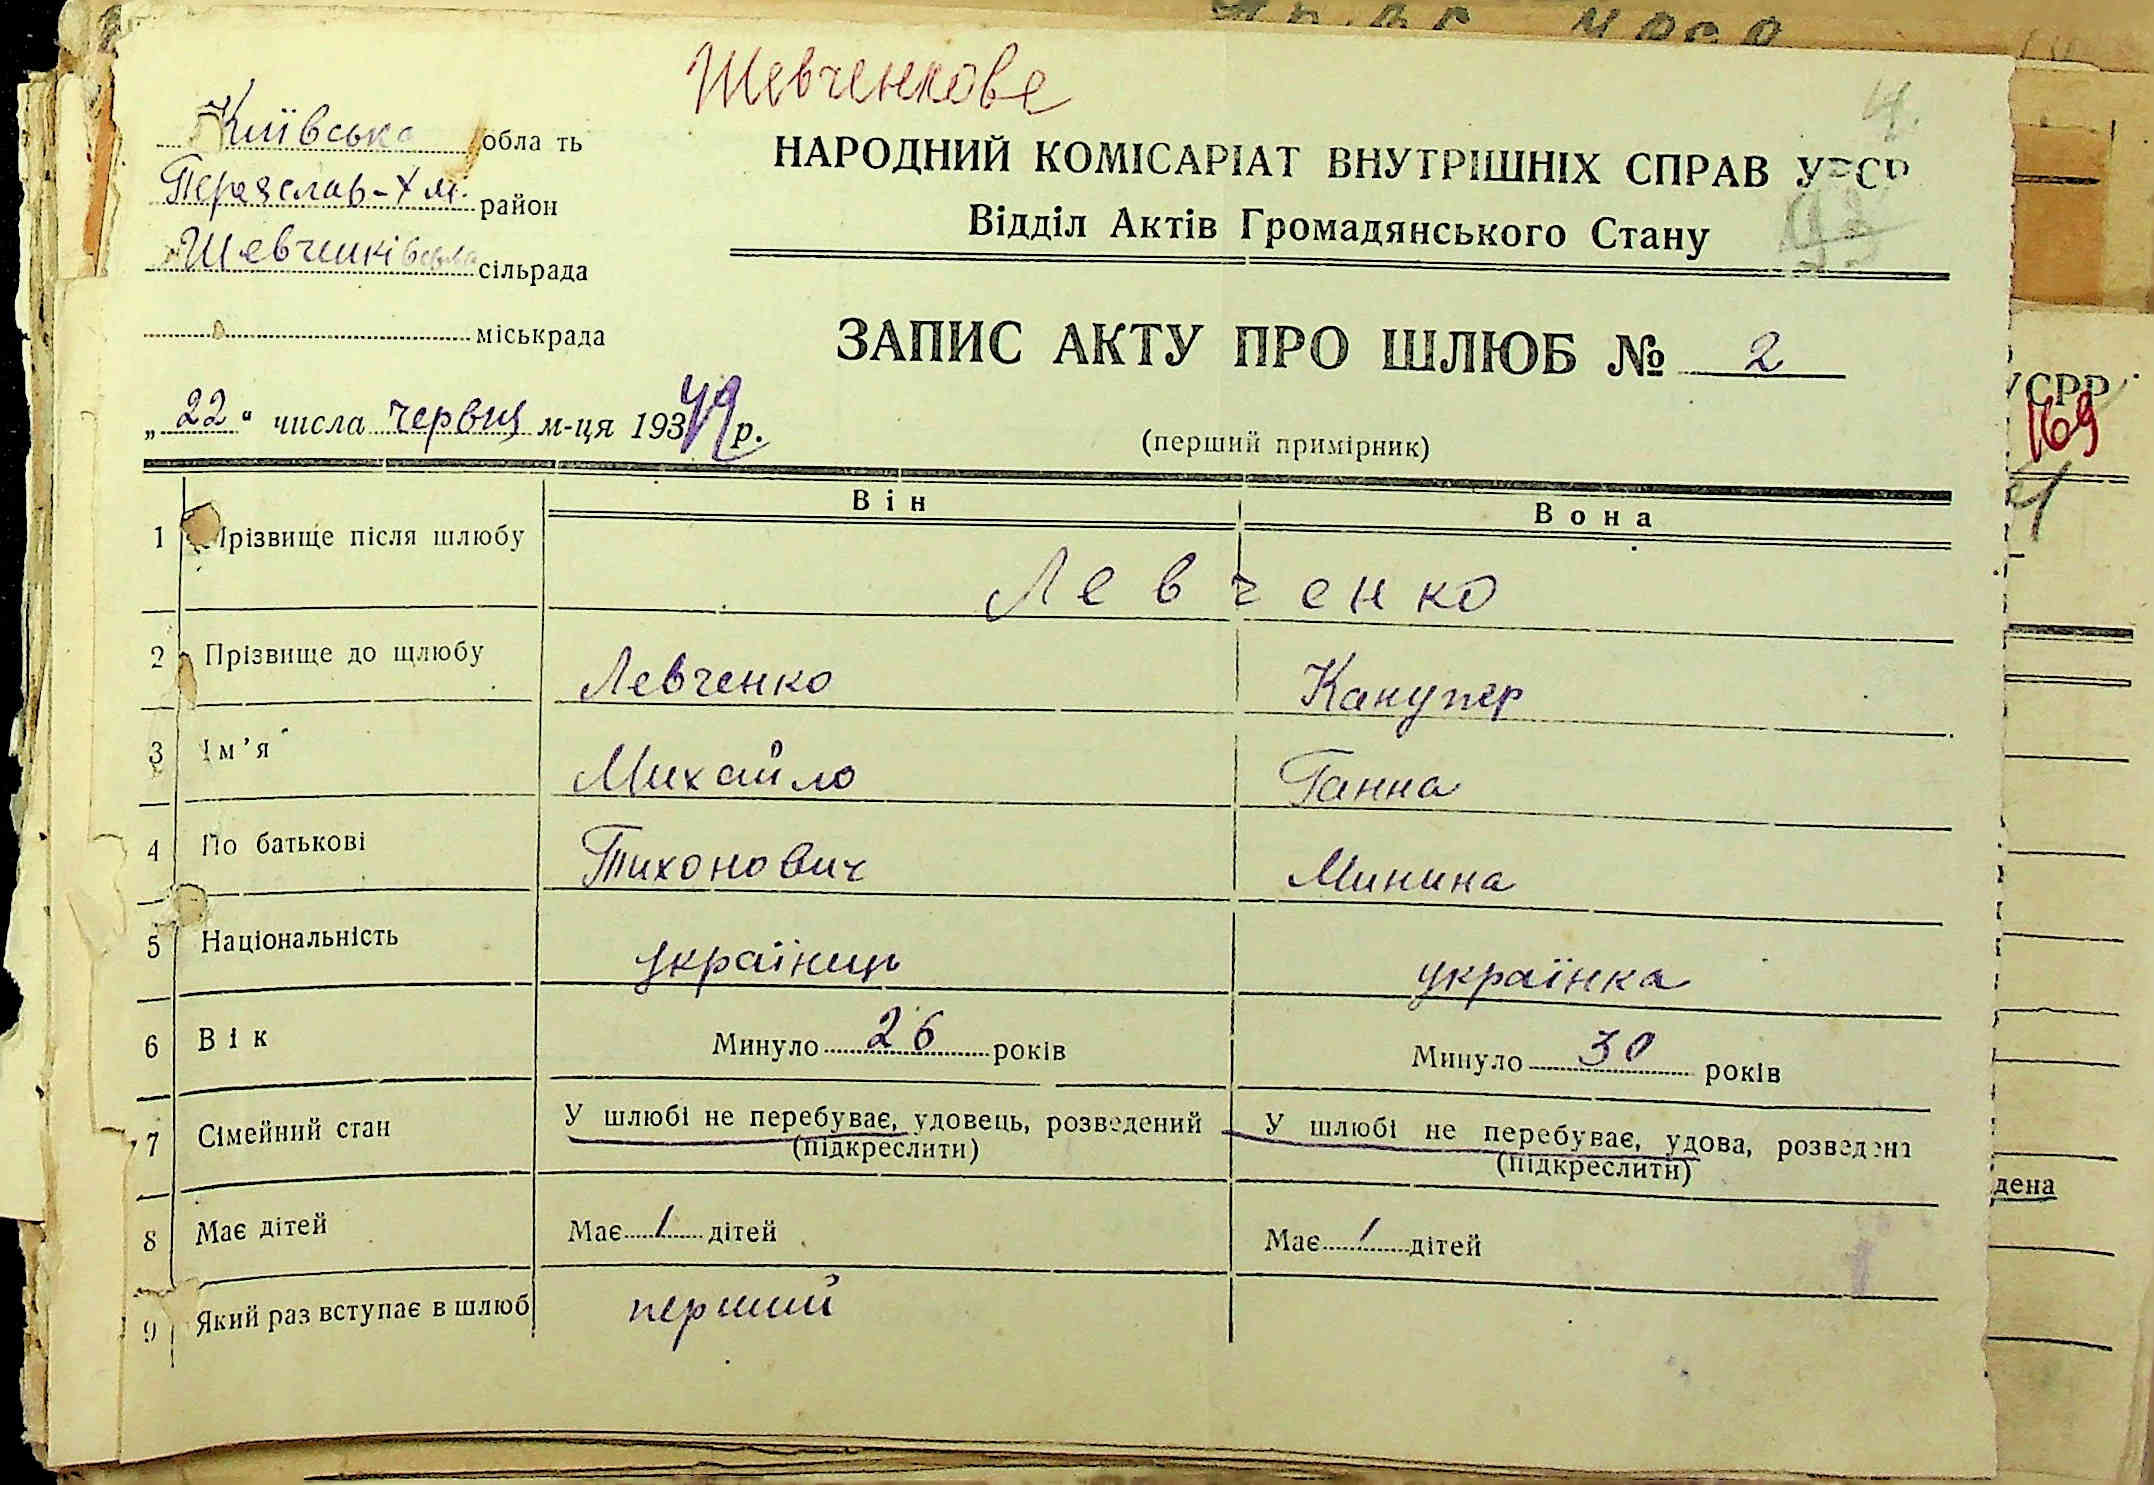 Шевченкове
4.
Київська обла ть
Переяслав-Хм. район
Шевченківська сільрада
міськрада
НАРОДНИЙ КОМІСАРІАТ ВНУТРІШНІХ СПРАВ УРСР
Відділ Актів Громадянського Стану
93
ЗАПИС АКТУ ПРО ШЛЮБ № 2
„22“ числа червня м-ця 19349 р.
(перший примірник)
Він Вона
1 Прізвище після шлюбу Левченко
2 Прізвище до щлюбу Левченко Канупер
3 Ім’я Михайло Ганна
4 По батькові Тихонович Минина
5 Національність українець українка
6 Вік Минуло 26 років Минуло 30 років
7 Сімейний стан У шлюбі не перебуває, удовець, розведений У шлюбі не перебуває, удова, розведена
(підкреслити) (підкреслити)
8 Має дітей Має 1 дітей Має 1 дітей
9 Який раз вступає в шлюб перший
УСРР
169
дена